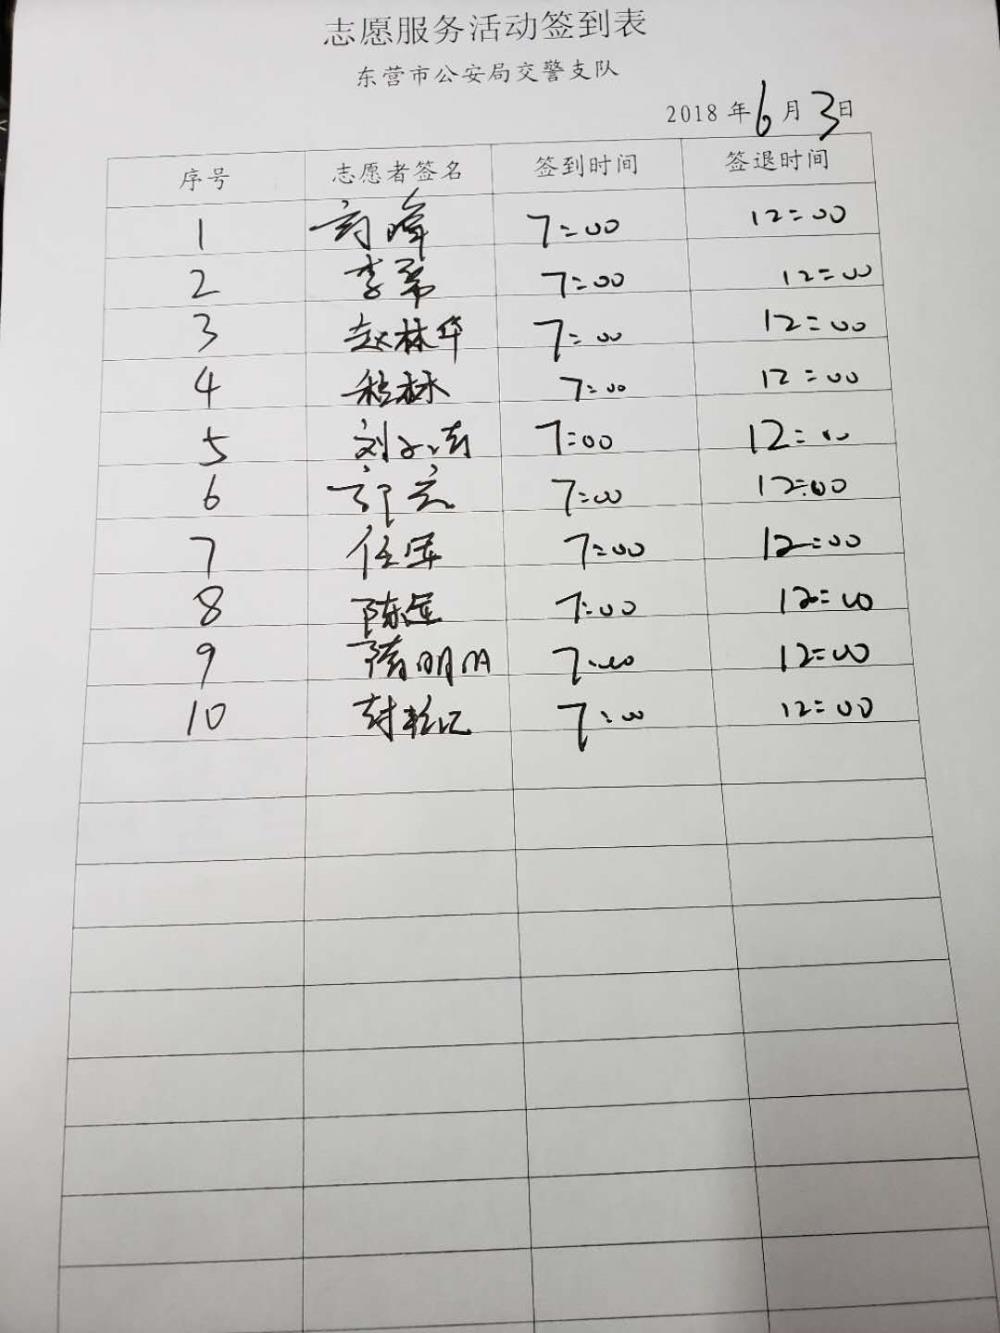 志愿服务活动签到表
东营市公安局交警支队
2018 年 6 月 3 日
序号 志愿者签名 签到时间 签退时间
1 7:00 12:00
2 李 7:00 12:00
3 赵林华 7:00 12:00
4 林 7:00 12:00
5 刘 7:00 12:00
6 7:00 12:00
7 任军 7:00 12:00
8 陈莲 7:00 12:00
9 隋明 7:00 12:00
10 7:00 12:00